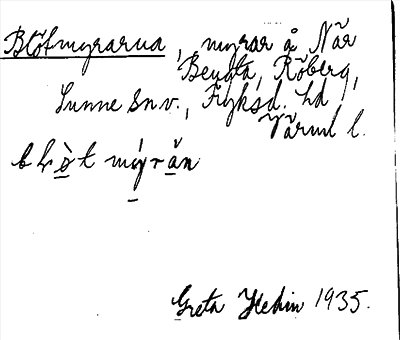 Blötmyrarna, myrar å När
Bengta, Röberg,
Sunne sn v., Fryksd. hd
Värml l.
Greta Hedin 1935.